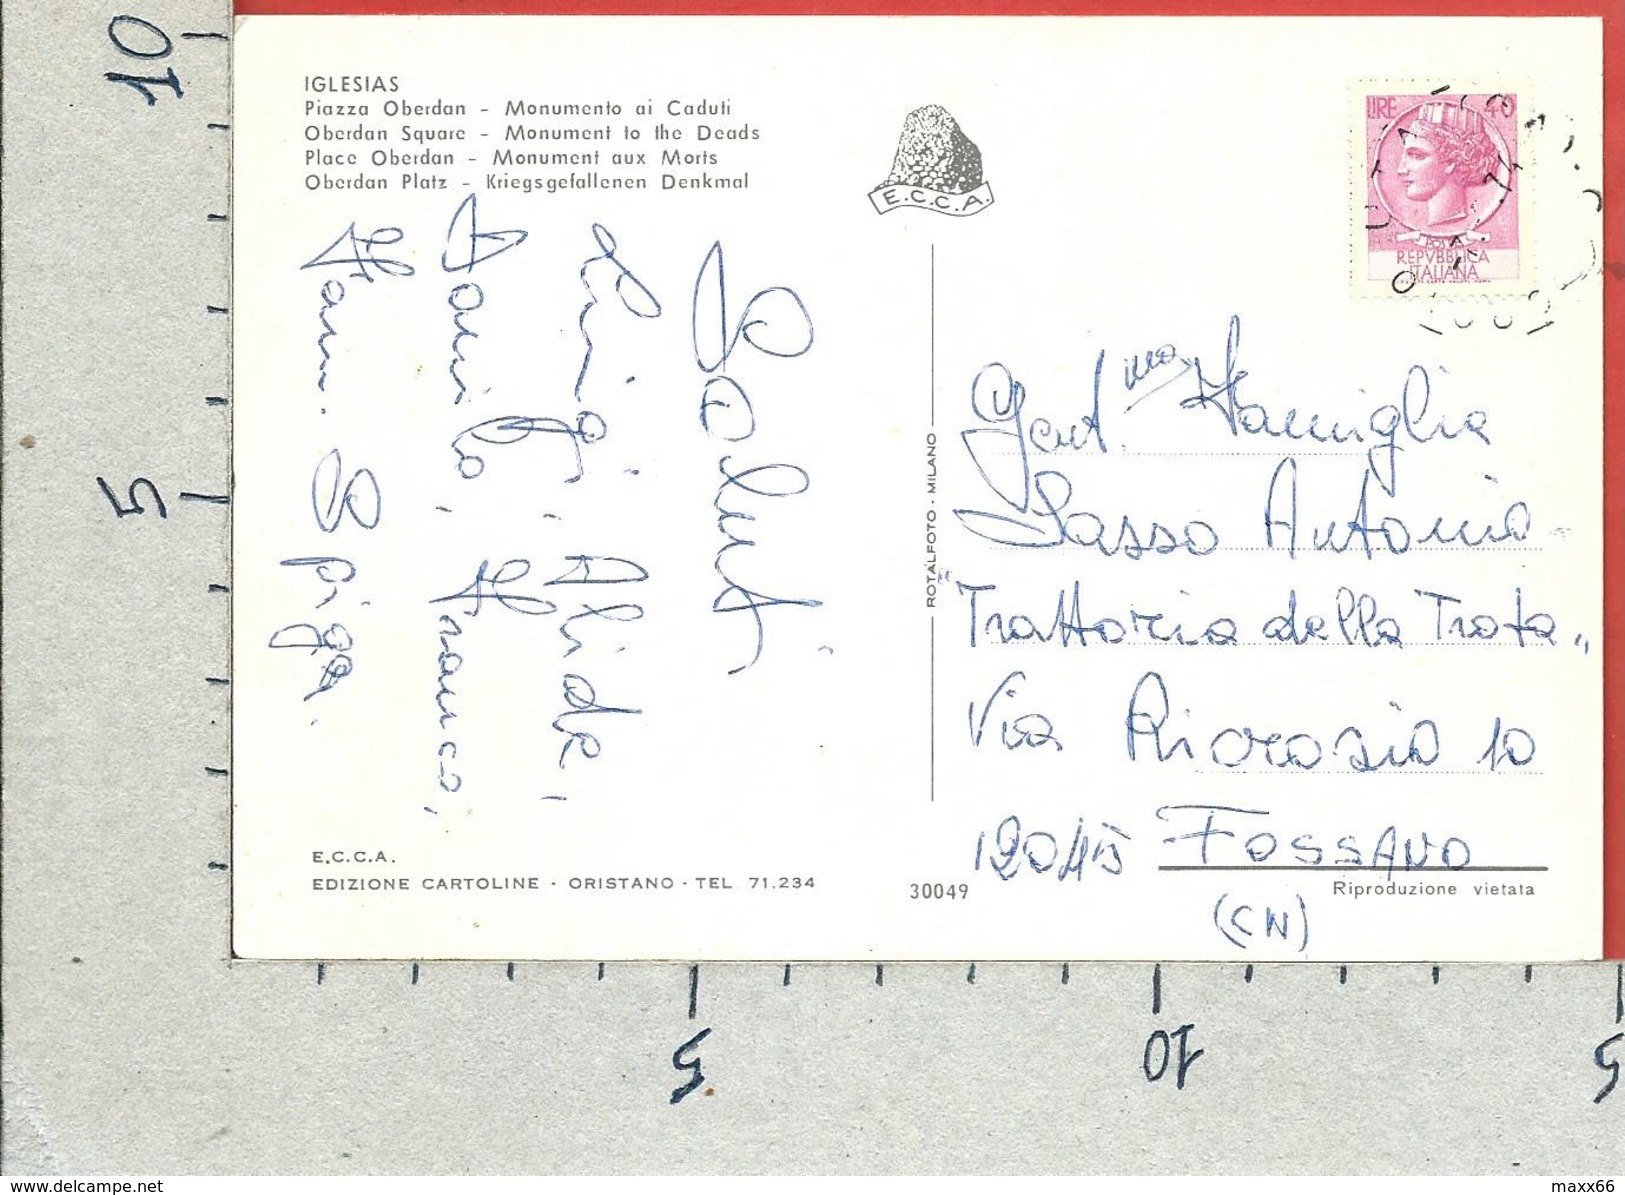 IGLESIAS
Piazza Oberdan - Monumento ai Caduti
Oberdan Square - Monument to the Deads
Place Oberdan - Monument aux Morts
Oberdan Platz - Kriegsgefallenen Denkmal
E.C.C.A.
LIRE 40
POSTE
REPVBBLICA
ITALIANA
Saluti
Luigi, Alide,
Danilo, Franco,
Fam. Spiga.
ROTALFOTO - MILANO
Gent.ma Famiglia
Sasso Antonio
"Trattoria della Trota"
Via 10
12045 FOSSANO
(CN)
E.C.C.A.
EDIZIONE CARTOLINE · ORISTANO · TEL. 71.234
30049
Riproduzione vietata
10
5
5
10
5
www.delcampe.net
maxx66